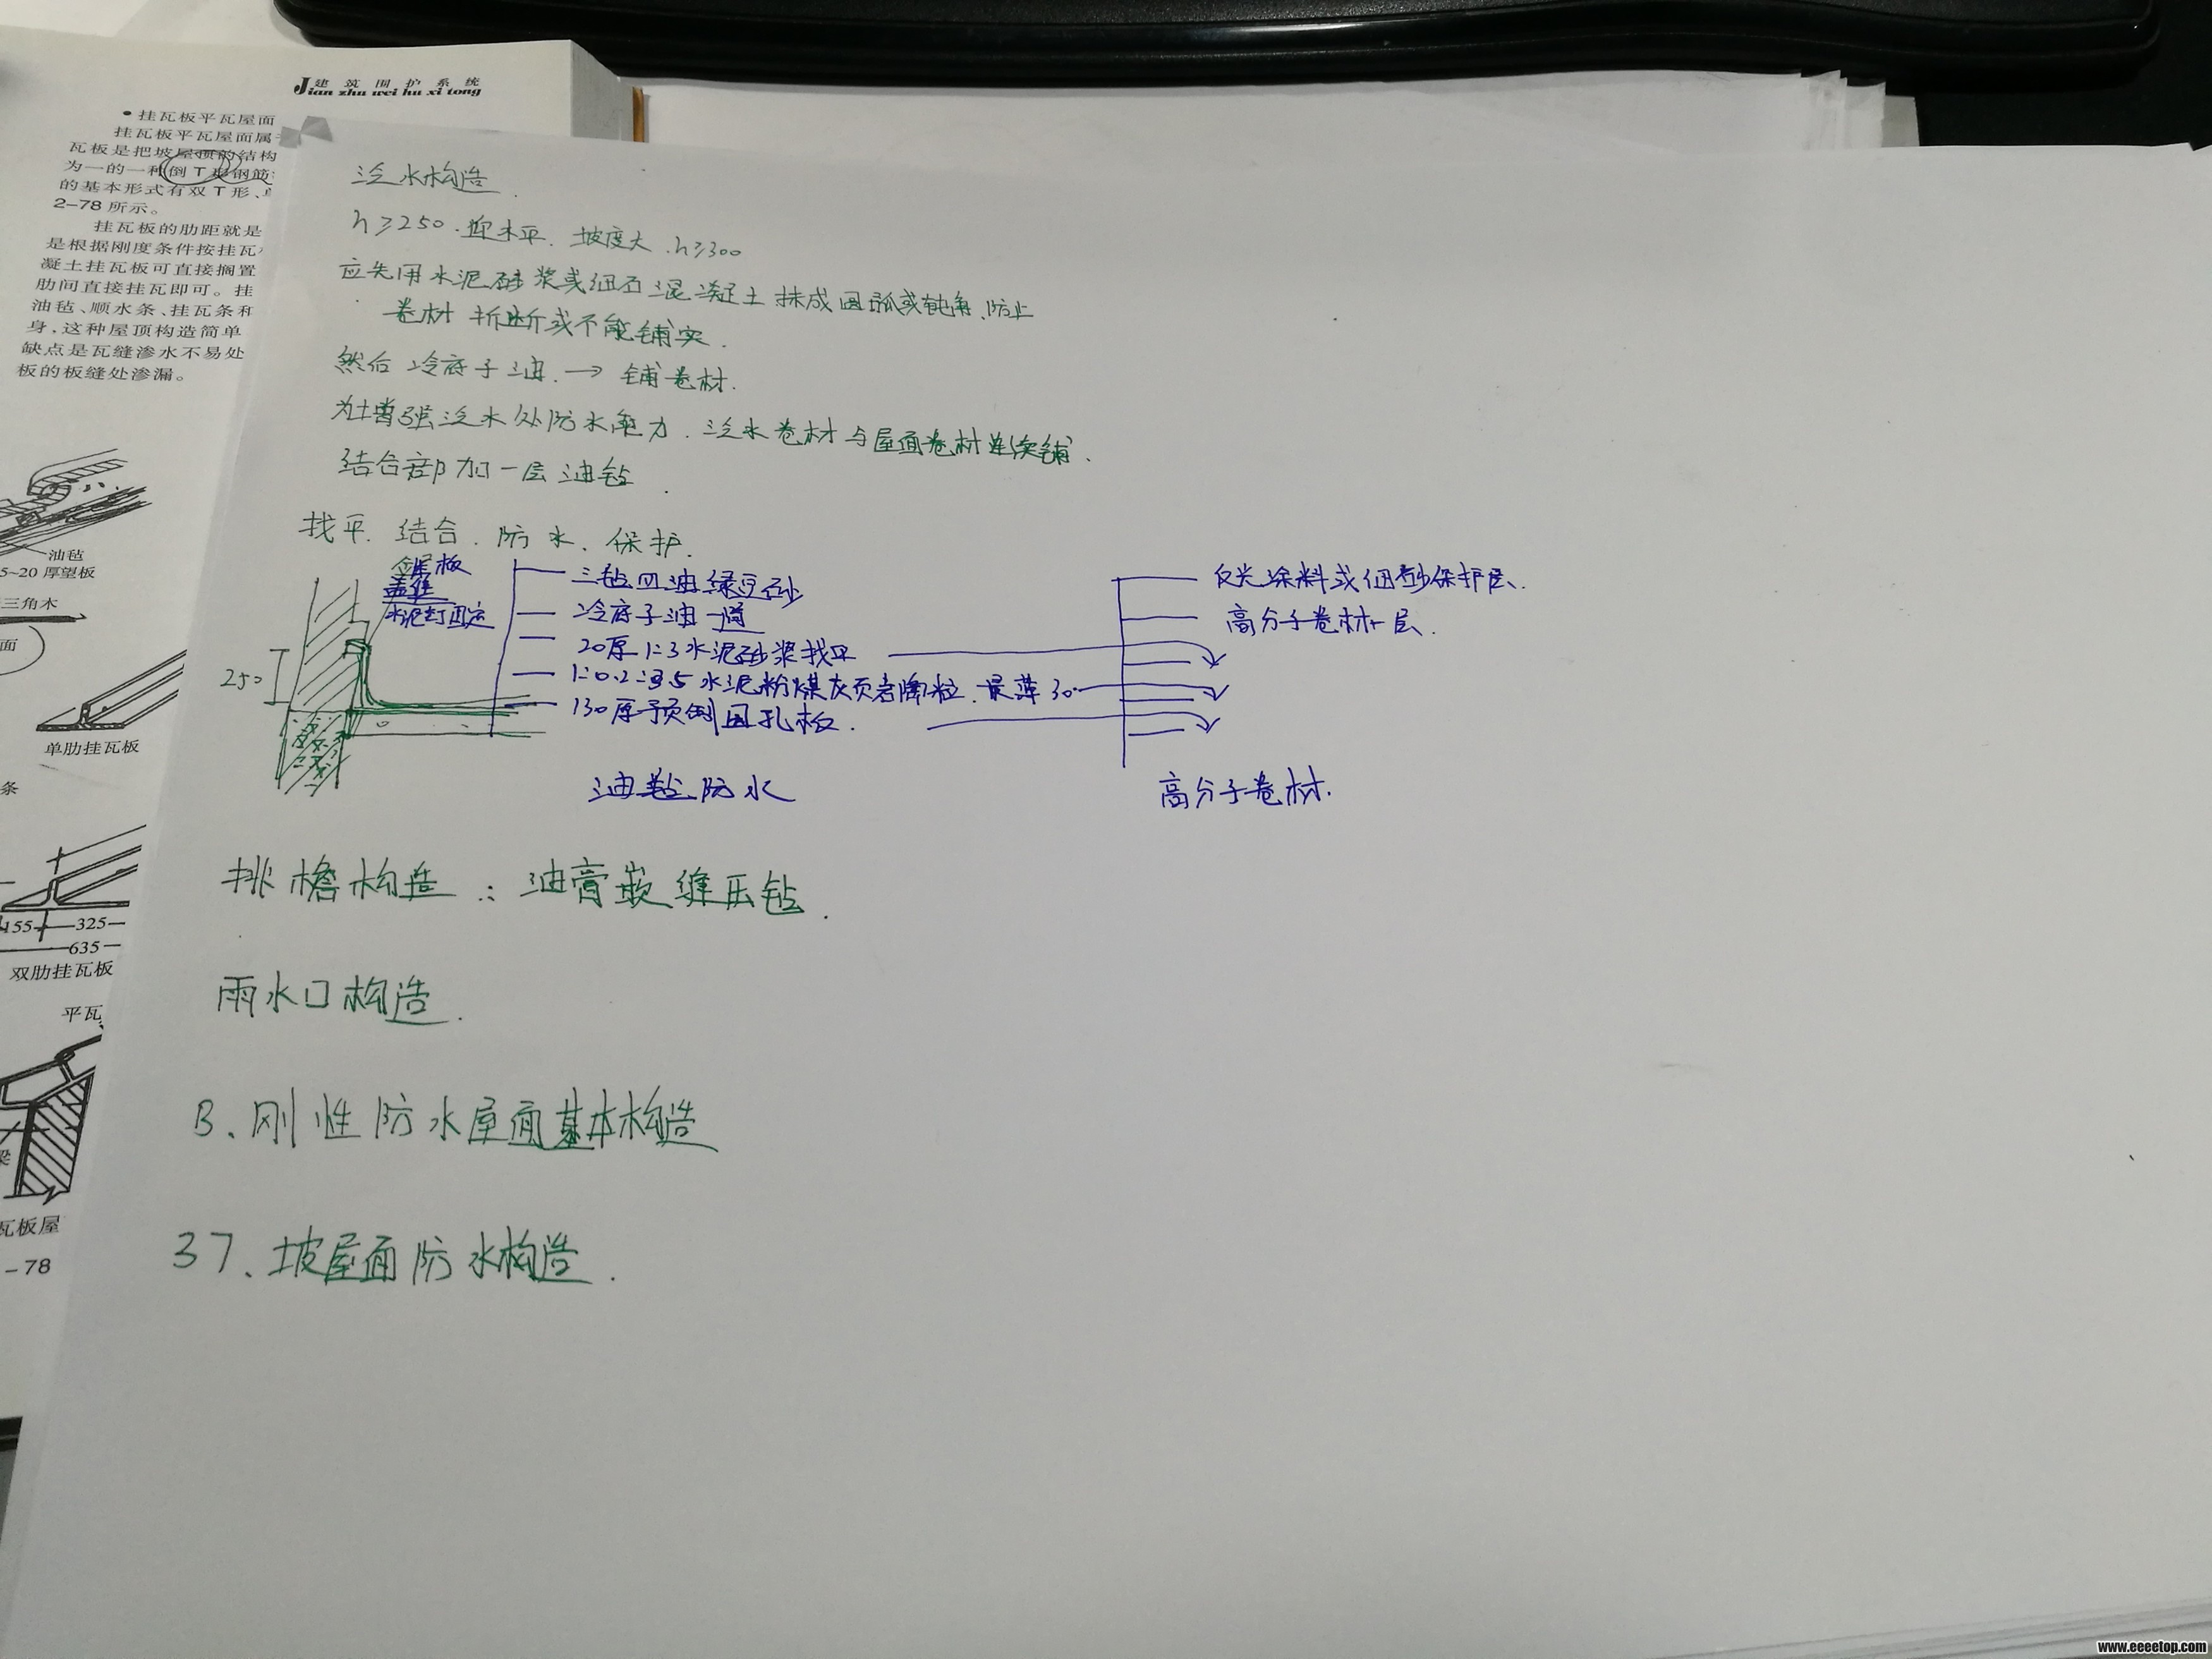 建筑围护系统
Jian zhu wei hu xi tong
• 挂瓦板平瓦屋面
挂瓦板平瓦屋面属
瓦板是把坡屋顶的结构
为一的一种倒T形钢筋
的基本形式有双T形、单
2-78所示。
挂瓦板的肋距就是
是根据刚度条件按挂瓦
凝土挂瓦板可直接搁置
肋间直接挂瓦即可。挂
油毡、顺水条、挂瓦条和
身,这种屋顶构造简单
缺点是瓦缝渗水不易处
板的板缝处渗漏。
油毡
5~20厚望板
三角木
面
单肋挂瓦板
条
155 325
635
双肋挂瓦板
平瓦
梁
瓦板屋
-78
泛水构造.
h≥250. 坡度大.h≥300
应先用水泥砂浆或细石混凝土抹成圆弧或钝角、防止
卷材折断或不能铺实.
然后 冷底子油. → 铺卷材.
为增强泛水处防水能力.泛水卷材与屋面卷材连续铺.
结合部加一层油毡.
找平.结合.防水、保护.
盖缝
水泥钉固定
三毡四油绿豆砂
冷底子油一道
20厚1:3水泥砂浆找平
1:0.2:3.5水泥粉煤灰页岩陶粒.最薄30
130厚预制圆孔板.
250
油毡防水
反光涂料或细砂保护层.
高分子卷材一层.
高分子卷材.
挑檐构造:油膏嵌缝压毡.
雨水口构造.
B、刚性防水屋面基本构造
37、坡屋面防水构造.
www.eeeetop.com